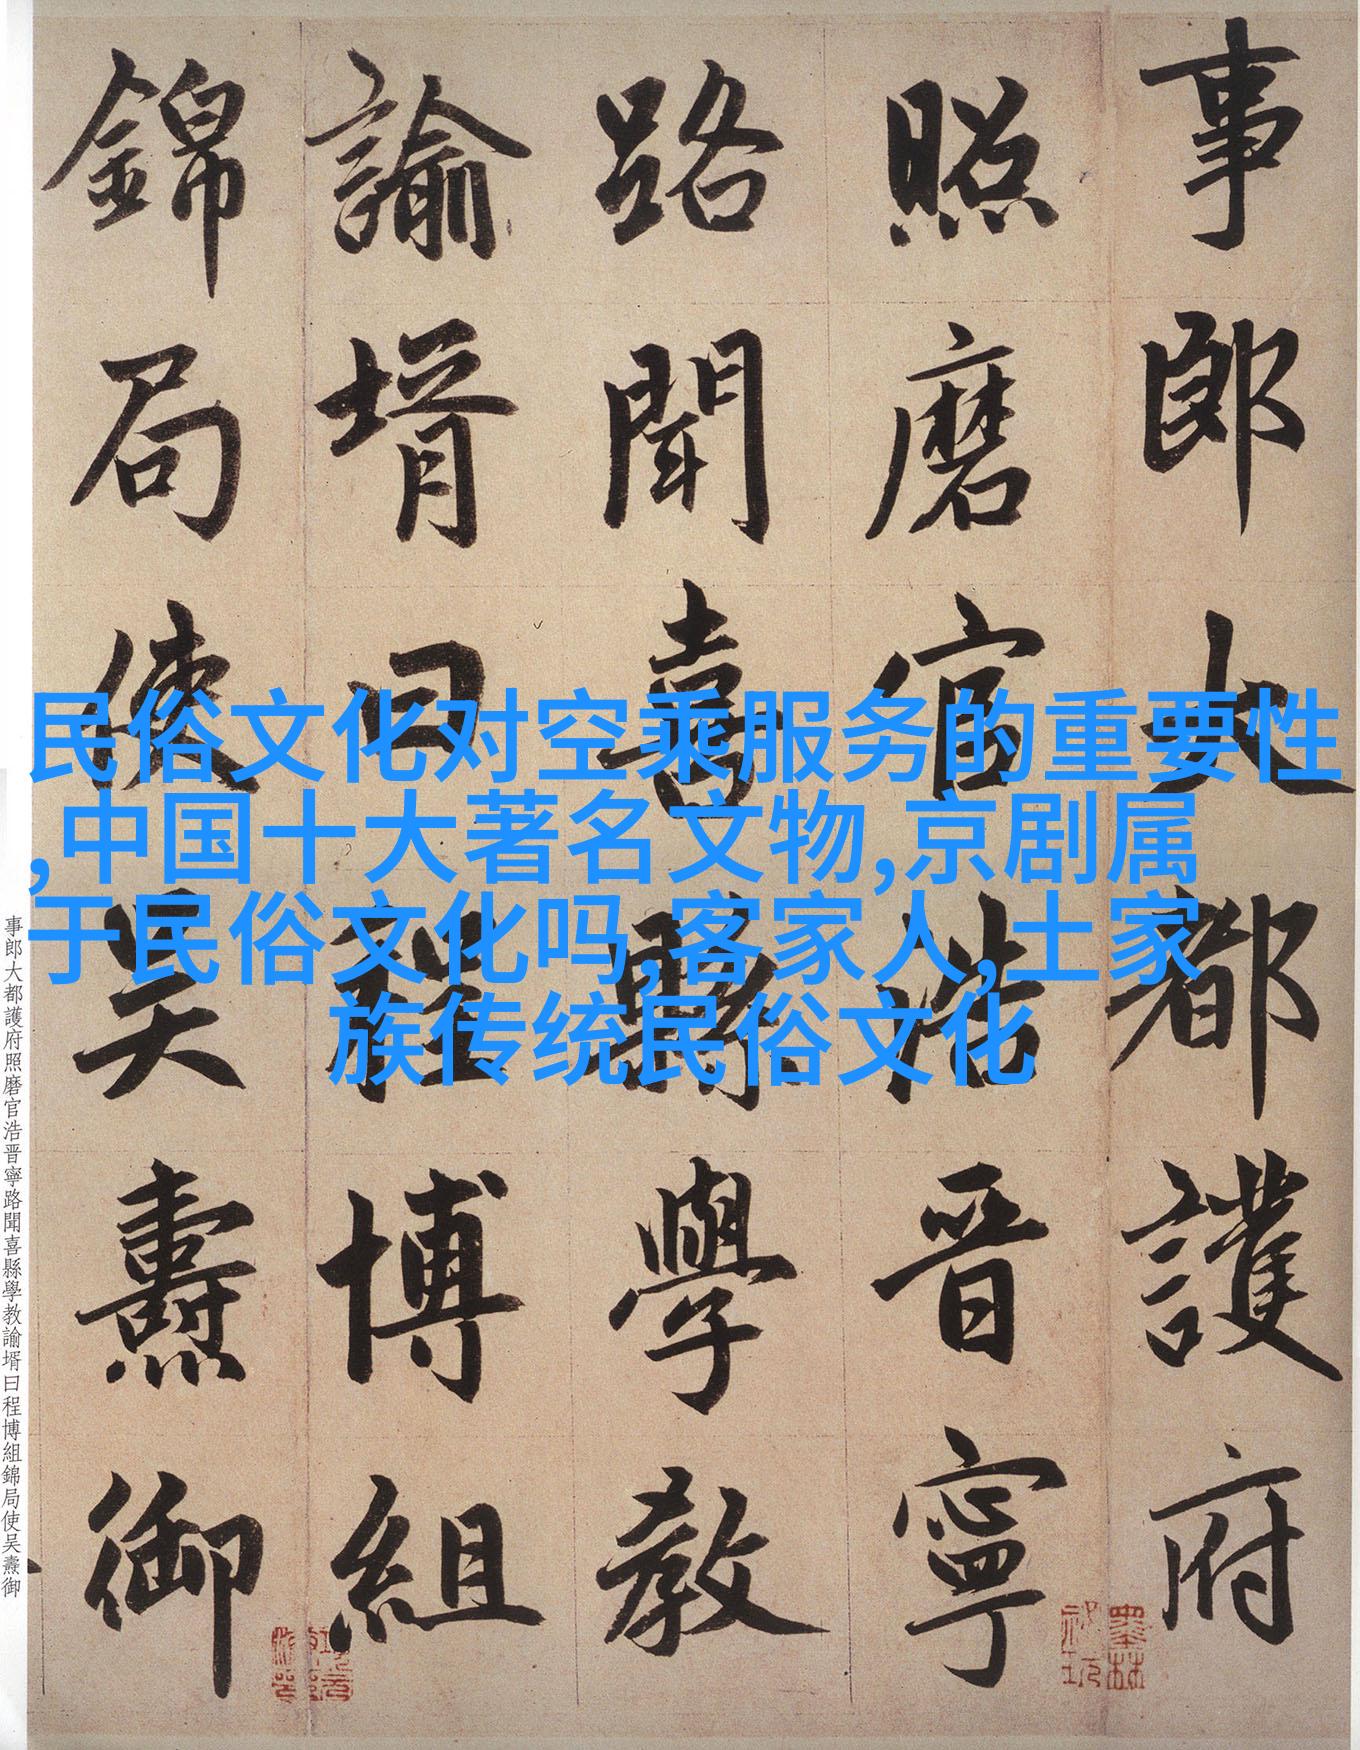 事郎大都護府
照磨官浩晋寧
路聞喜縣學教
諭壻曰程博組
錦局使吴燾御
民俗文化对空乘服务的重要性
,中国十大著名文物,京剧属
于民俗文化吗,客家人,土家
族传统民俗文化
事郎大都護府照磨官浩晋寧路聞喜縣學教諭壻曰程博組錦局使吴燾御